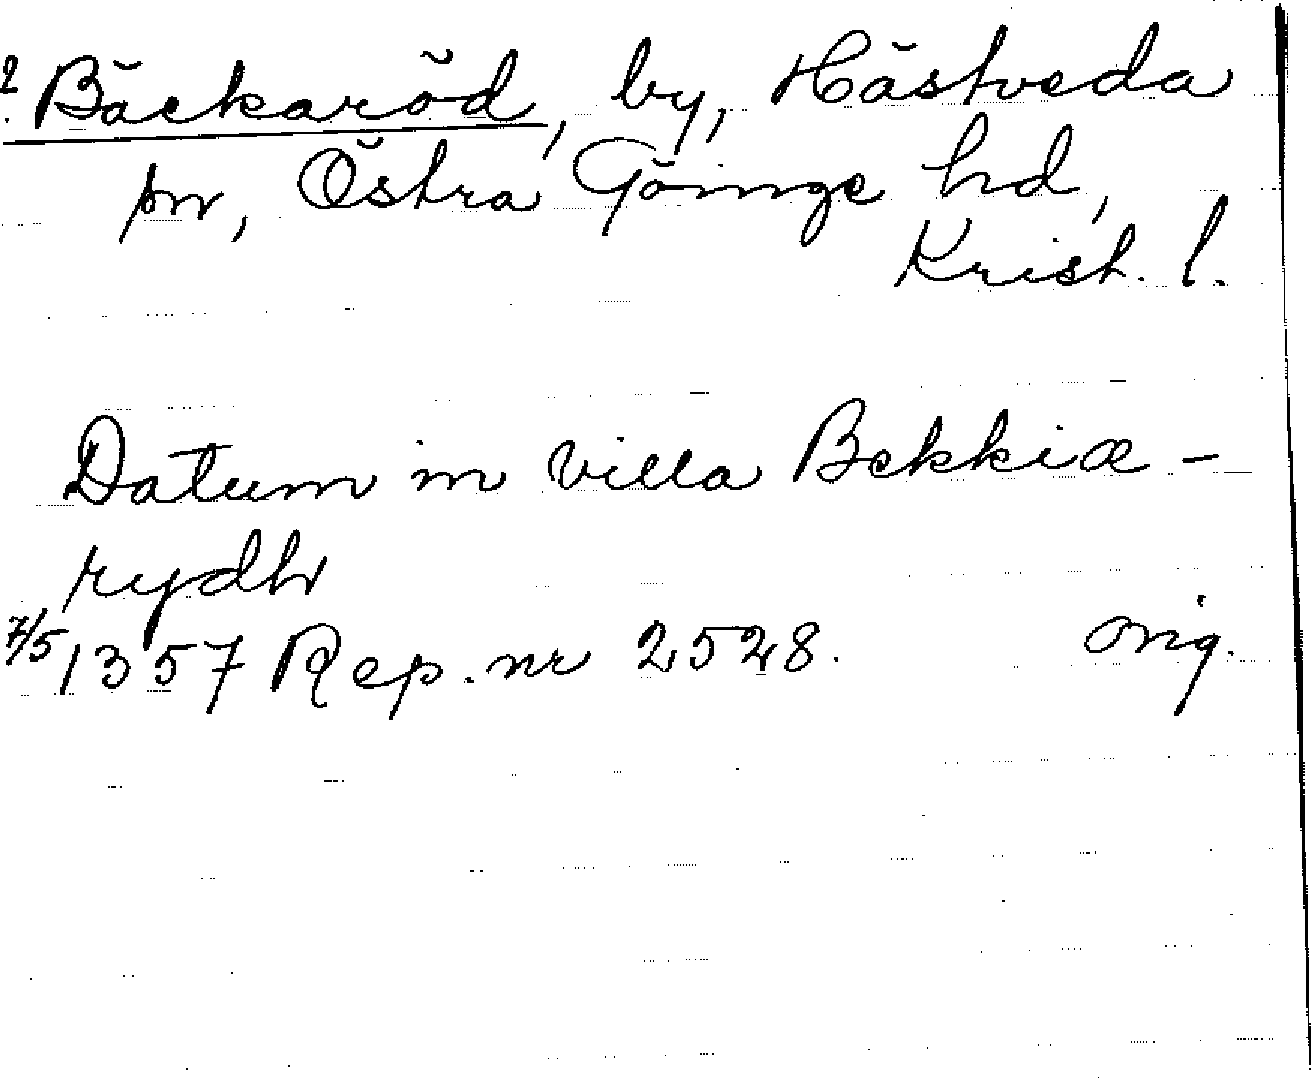 2 Bäckaröd, by, Hästveda
sn, Östra Göinge hd,
Krist. l.
Datum in villa Bekkiæ-
rydh
7/5 1357 Rep. nr 2528. orig.